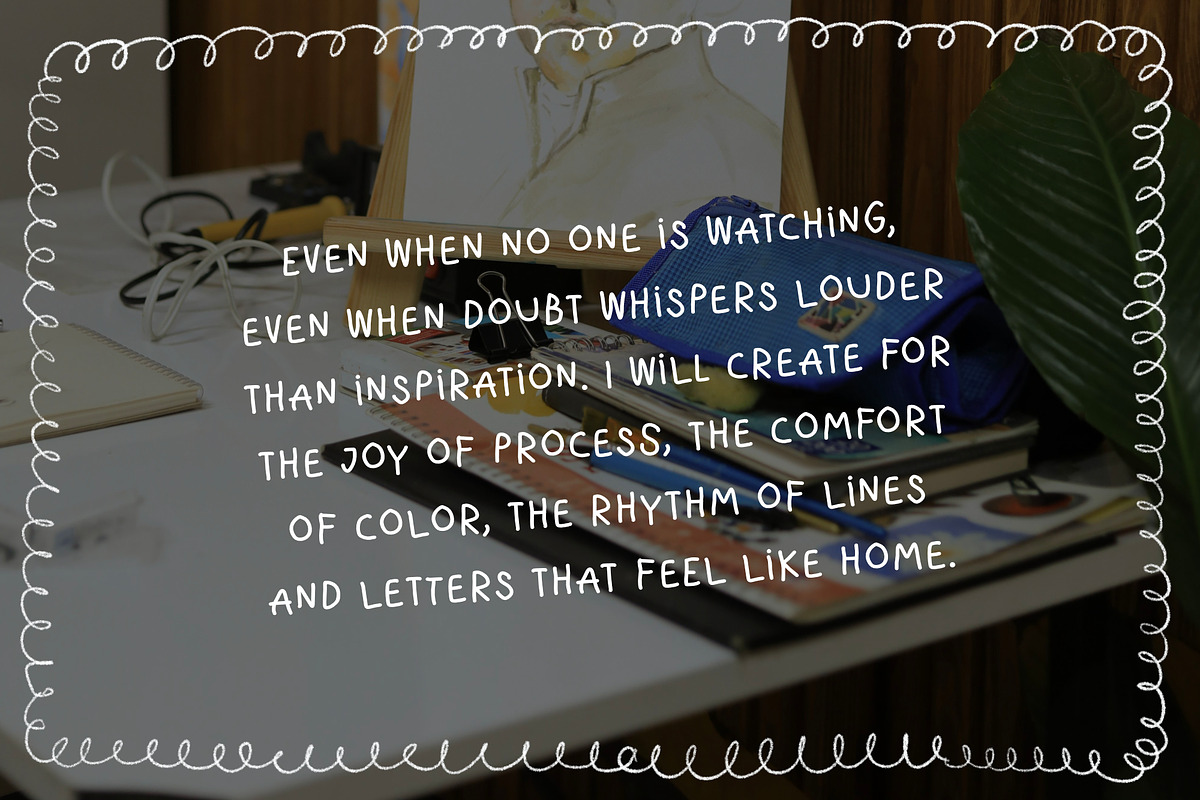 EVEN WHEN NO ONE IS WATCHING,
EVEN WHEN DOUBT WHISPERS LOUDER
THAN INSPIRATION. I WILL CREATE FOR
THE JOY OF PROCESS, THE COMFORT
OF COLOR, THE RHYTHM OF LINES
AND LETTERS THAT FEEL LIKE HOME.